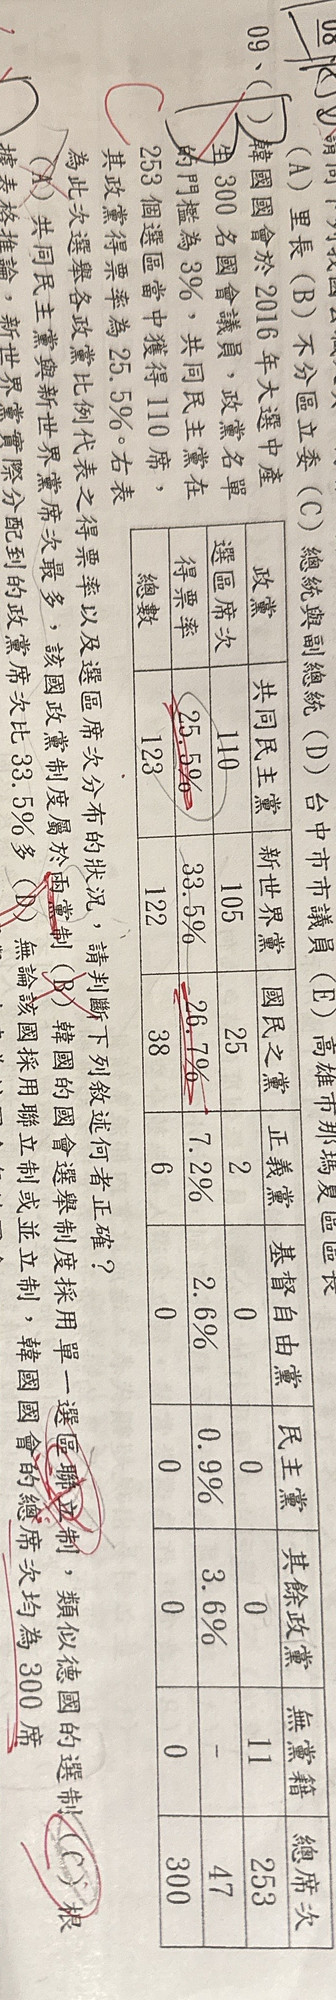 08
(A) 里長 (B) 不分區立委 (C) 總統與副總統 (D) 台中市市議員 (E) 高雄市那瑪夏區區長
09、( ) 韓國國會於 2016 年大選中產
生 300 名國會議員，政黨名單
的門檻為 3%，共同民主黨在
253 個選區當中獲得 110 席，
其政黨得票率為 25.5%。右表
政黨 共同民主黨 新世界黨 國民之黨 正義黨 基督自由黨 民主黨 其餘政黨 無黨籍 總席次
選區席次 110 105 25 2 0 0 0 11 253
得票率 25.5% 33.5% 26.7% 7.2% 2.6% 0.9% 3.6% - 47
總數 123 122 38 6 0 0 0 0 300
為此次選舉各政黨比例代表之得票率以及選區席次分布的狀況，請判斷下列敘述何者正確？
(A) 共同民主黨與新世界黨席次最多，該國政黨制度屬於兩黨制 (B) 韓國的國會選舉制度採用單一選區聯立制，類似德國的選制 (C) 根
據表格推論，新世界黨實際分配到的政黨席次比 33.5%多 (D) 無論該國採用聯立制或並立制，韓國國會的總席次均為 300 席